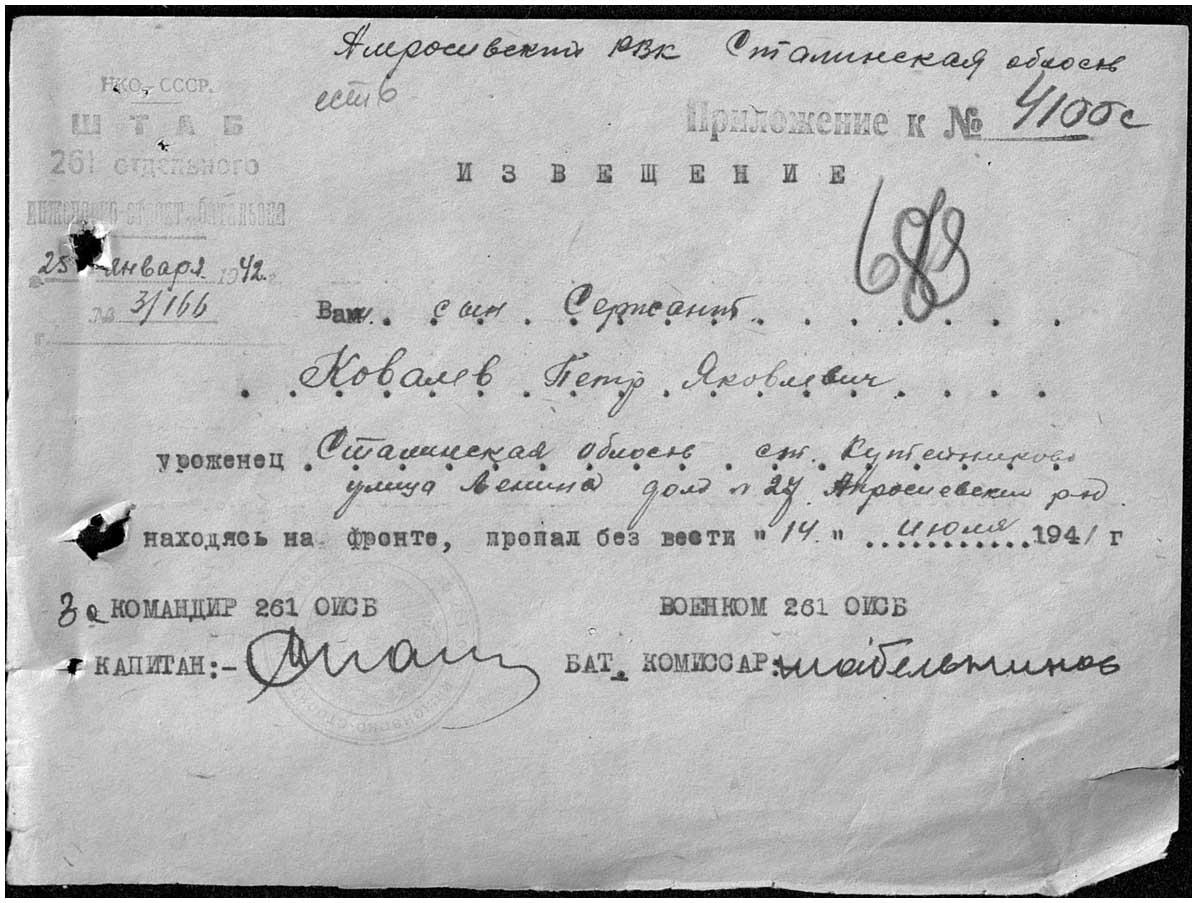 Амросивский РВК Сталинская облось
есть
НКО СССР.
ШТАБ
261 отдельного
инженерно-строит. батальона
Приложение к № 4100с
ИЗВЕЩЕНИЕ
683
25 января 1942 г.
№ 3/166
г.
Ваш сын Сержант
Ковалев Петр Яковлевич
уроженец Сталинская облось ст. Кутейниково
улица Ленина дом № 27 Амросиевский р-н
находясь на фронте, пропал без вести "14" июля 1941 г
За КОМАНДИР 261 ОИСБ
ВОЕНКОМ 261 ОИСБ
КАПИТАН:-
БАТ. КОМИССАР: Шабельников